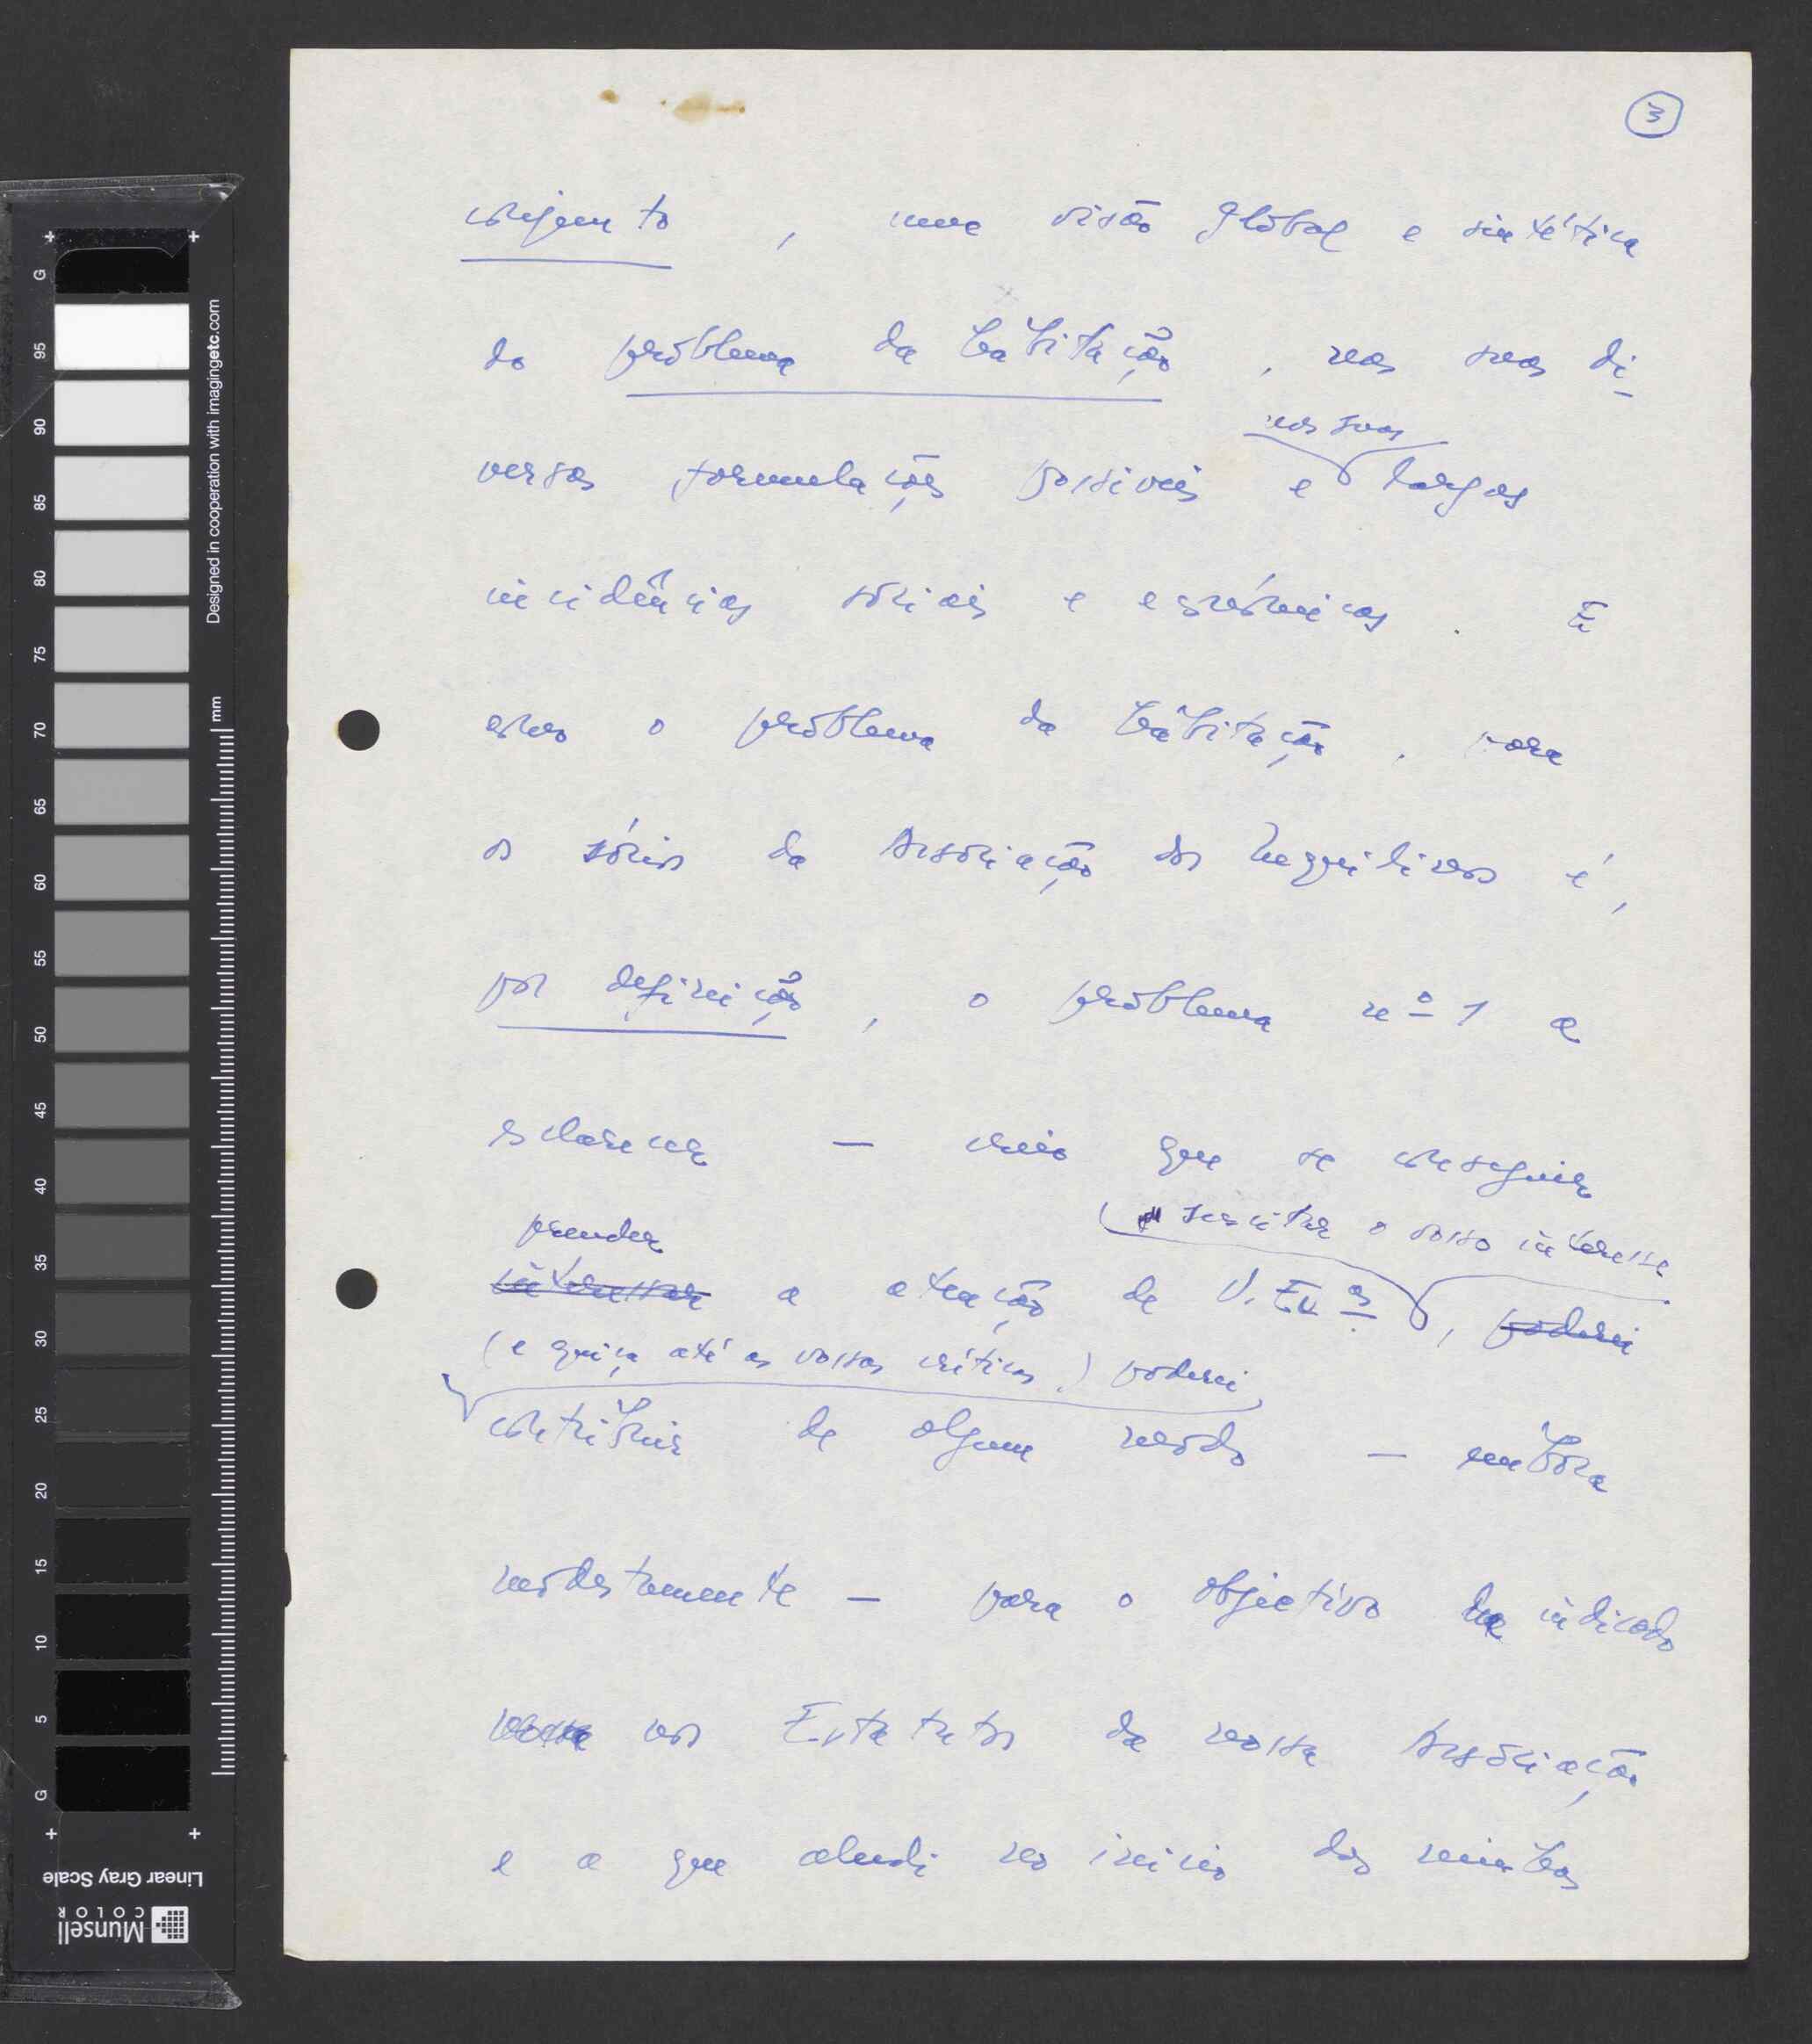 3
conjunto, uma visão global e sintética
do problema da habitação, nas suas di-
nas suas
versas formulações possiveis e largas
incidências sociais e económicas. E
como o problema da habitação, para
os sócios da Associação dos Inquilinos é,
por definição, o problema nº 1 a
esclarecer — creio que se conseguir
(suscitar o vosso interesse
prender
interessar a atenção de V. Exas, poderei
(e quiça até as vossas críticas) poderei
contribuir de algum modo — embora
modestamente — para o objectivo indicado
nos Estatutos da vossa Associação
e a que aludi no inicio das minhas
G 95 90 85 80 75 70 65 60 55 50 45 40 35 30 25 20 15 10 5 G
Designed in cooperation with imagingetc.com
mm
Linear Gray Scale
Munsell
COLOR